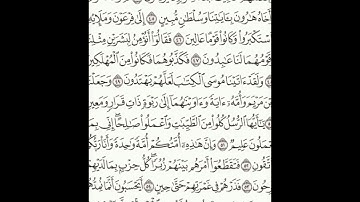 أَخَاهُ هَٰرُونَ بِـَٔايَٰتِنَا وَسُلْطَٰنٍ مُّبِينٍ ٤٥ إِلَىٰ فِرْعَوْنَ وَمَلَإِي
ٱسْتَكْبَرُوا۟ وَكَانُوا۟ قَوْمًا عَالِينَ ٤٦ فَقَالُوٓا۟ أَنُؤْمِنُ لِبَشَرَيْنِ مِثْلِ
قَوْمُهُمَا لَنَا عَٰبِدُونَ ٤٧ فَكَذَّبُوهُمَا فَكَانُوا۟ مِنَ ٱلْمُهْلَكِينَ
وَلَقَدْ ءَاتَيْنَا مُوسَى ٱلْكِتَٰبَ لَعَلَّهُمْ يَهْتَدُونَ ٤٩ وَجَعَلْنَ
نَ مَرْيَمَ وَأُمَّهُۥٓ ءَايَةً وَءَاوَيْنَٰهُمَآ إِلَىٰ رَبْوَةٍ ذَاتِ قَرَارٍ وَمَعِينٍ
يَٰٓأَيُّهَا ٱلرُّسُلُ كُلُوا۟ مِنَ ٱلطَّيِّبَٰتِ وَٱعْمَلُوا۟ صَٰلِحًا إِنِّى بِمَا
عْمَلُونَ عَلِيمٌ ٥١ وَإِنَّ هَٰذِهِۦٓ أُمَّتُكُمْ أُمَّةً وَٰحِدَةً وَأَنَا۠ رَبُّكُ
تَّقُونِ ٥٢ فَتَقَطَّعُوٓا۟ أَمْرَهُم بَيْنَهُمْ زُبُرًا كُلُّ حِزْبٍۭ بِمَا لَدَيْهِمْ
رِحُونَ ٥٣ فَذَرْهُمْ فِى غَمْرَتِهِمْ حَتَّىٰ حِينٍ ٥٤ أَيَحْسَبُونَ أَنَّمَا نُمِدُّ